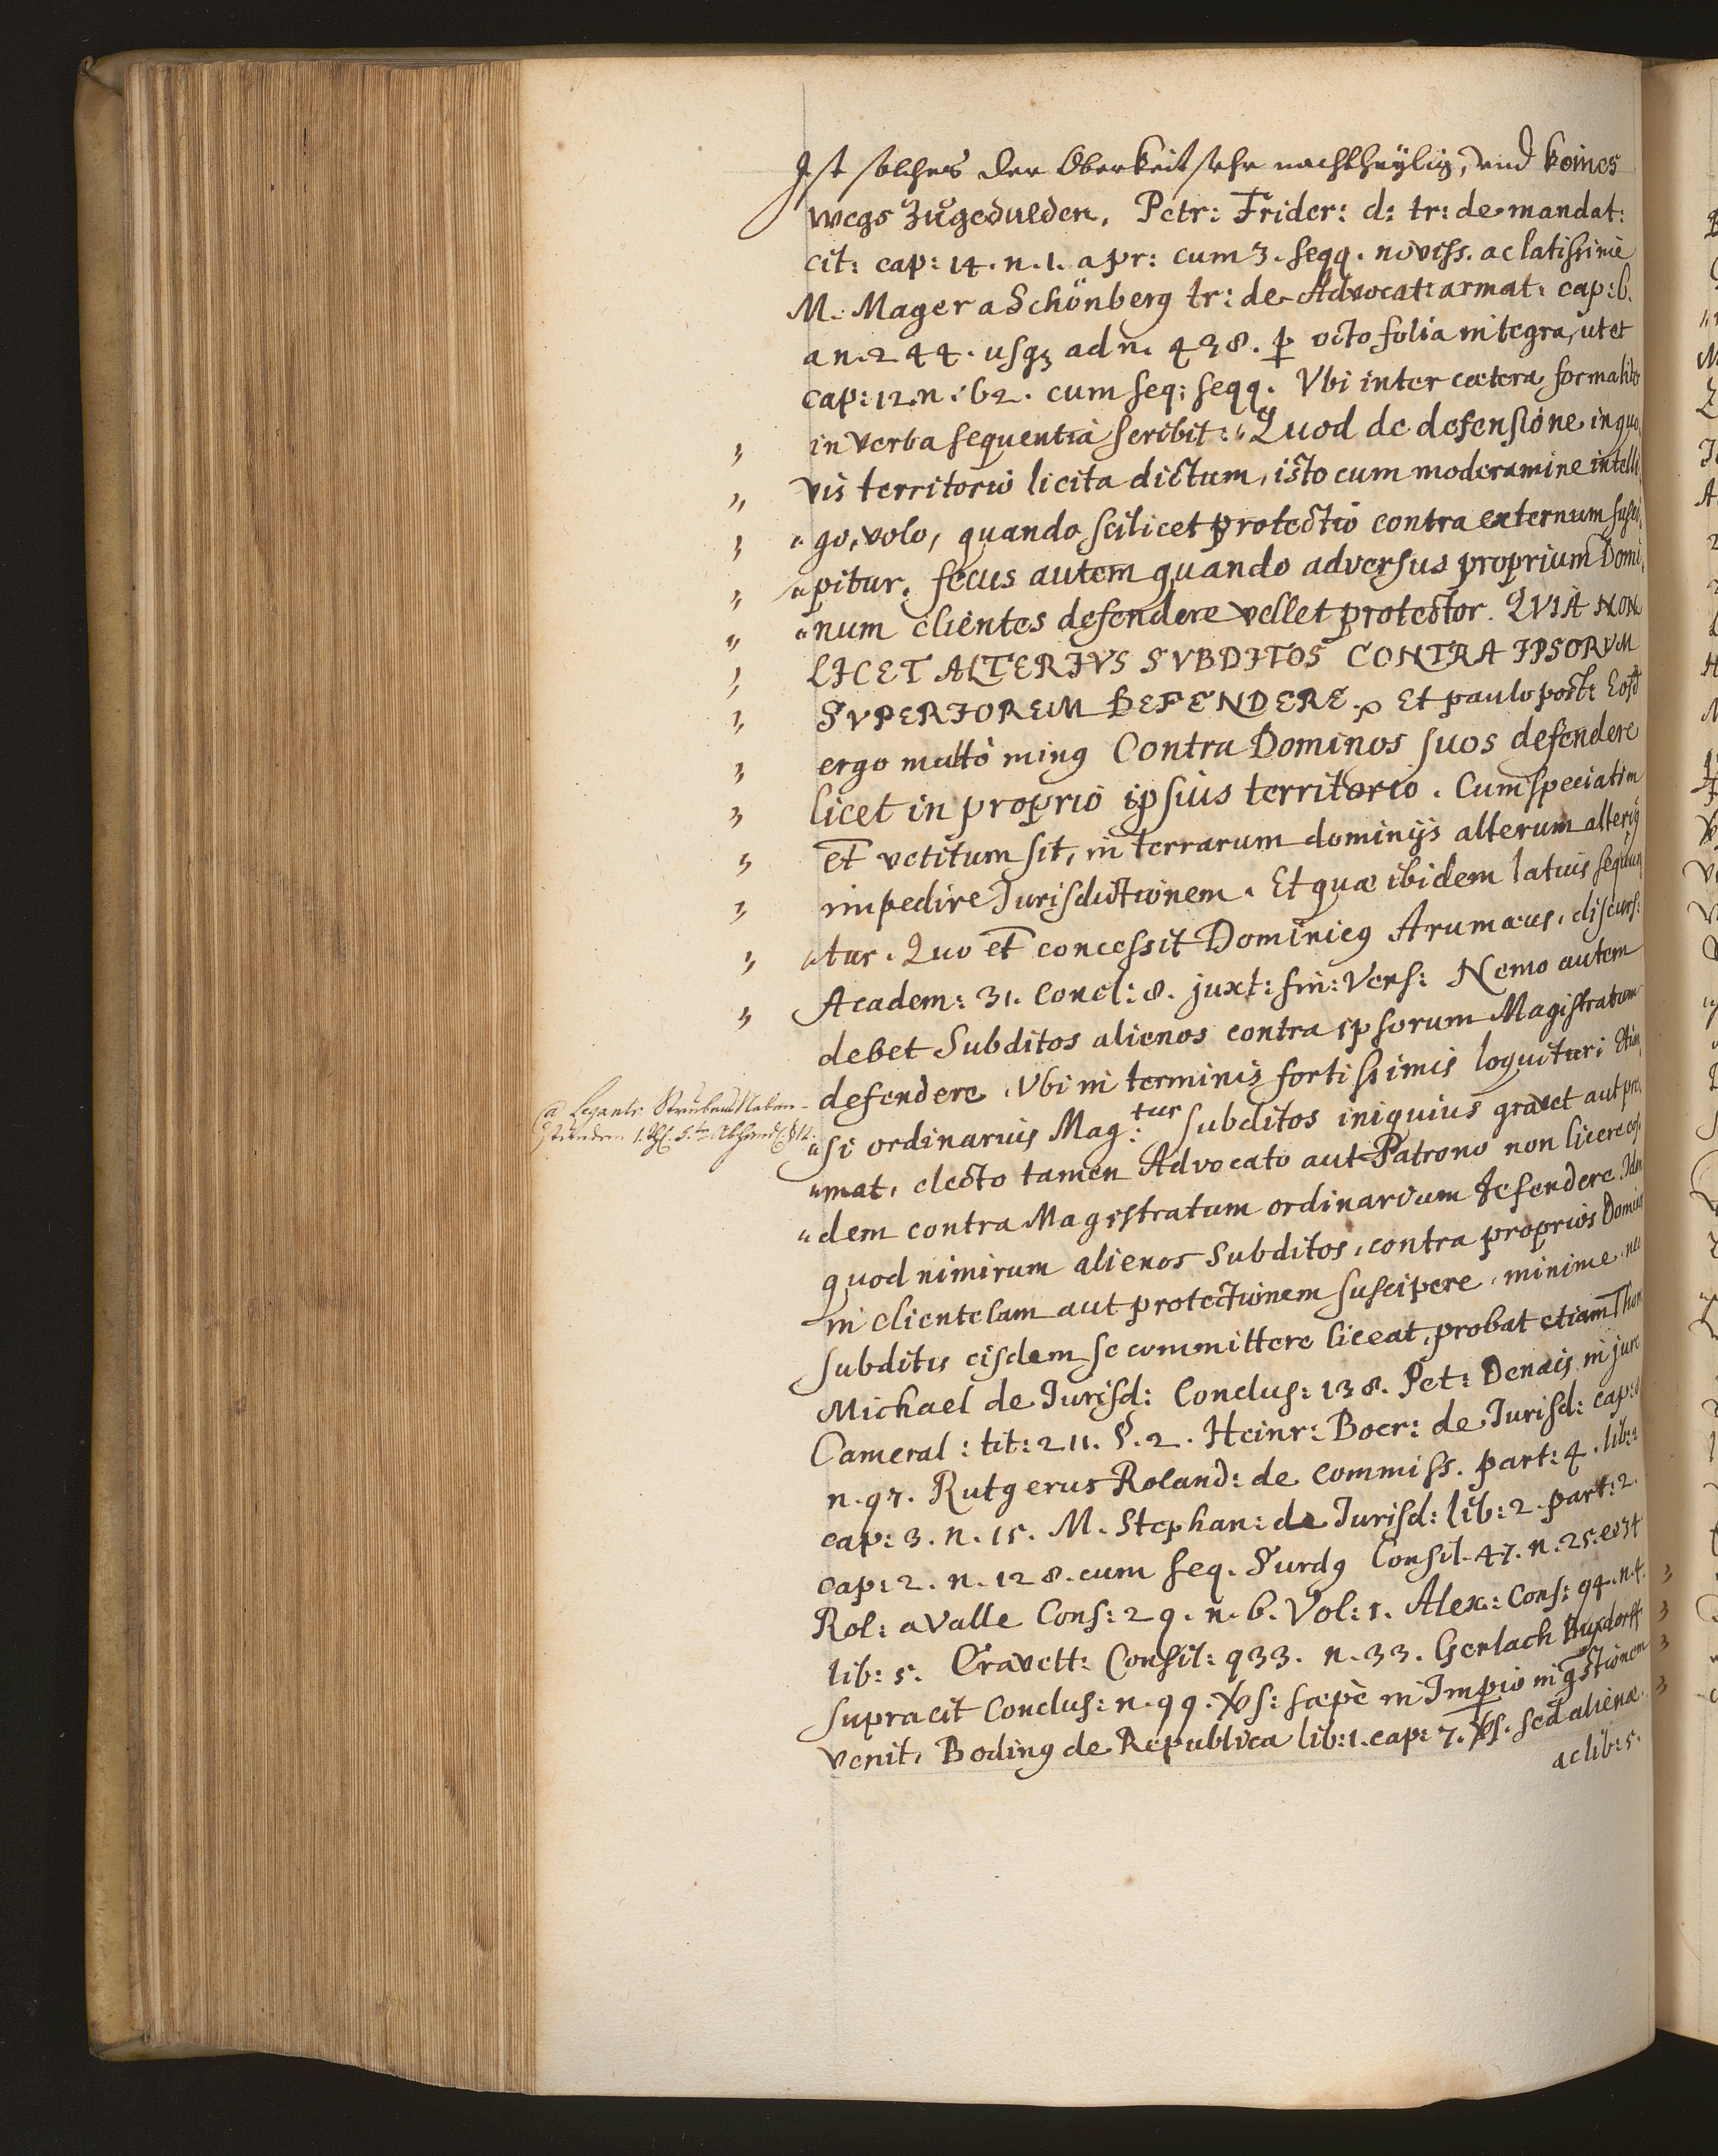 Ist solches der Oberkeit sehr nachtheylig, vnd keines
wegs Zůgedulden. Petr: Frider: d: tr: de mandat:
cit: cap: 14. n. 1. a pr: cum 3. seqq. noviss. ac latissimè
M. Mager a Schönberg tr: de Advocat: armat: cap: 6.
a n. 244. usq3 ad n. 438. p octo folia integra, ut et
cap: 12. n. 62. cum seq: seqq. Vbi inter cætera formaliter
in verba sequentia scribit: „Quod de defensione in quo
vis territorio licita dictum, isto cum moderamine intelli
„go, volo, quando scilicet protectio contra externum susci
„pitur, secus autem quando adversus proprium Domi
„num clientes defendere vellet protector. QVIA NON
LICET ALTERIVS SVBDITOS CONTRA IPSORVM
SVPERIOREM DEFENDERE. Et paulo post: Eosd
ergo multò ming Contra Dominos suos defendere
licet in proprio ipsius territorio. Cum speciatim
et vetitum sit, in terrarum dominijs alterum alterig
impedire Jurisdictionem. Et quæ ibidem latius sequun
„tur. Quo et concessit Dominicg Arumæus, discurs:
Academ: 31. Concl: 8. juxt: fin: Vers: Nemo autem
debet Subditos alienos contra ipsorum Magistratum
defendere. Vbi in terminis fortissimis loquitur: Etiam
„si ordinarius Mag:tus subditos iniquius gravet aut pre
„mat, electo tamen Advocato aut Patrono non licere eos
„dem contra Magistratum ordinarium defendere. Idem
quod nimirum alienos Subditos, contra proprios Dominos
in clientelam aut protectionem suscipere, minime nec
subditis eisdem se committere liceat, probat etiam Thom
Michael de Jurisd: Conclus: 138. Pet: Denais in jure
Cameral: tit: 211. §. 2. Heinr: Bocr: de Jurisd: cap:
n. 97. Rutgerus Roland: de Commiss. part: 4. lib: 2
cap: 3. n. 15. M. Stephan: de Jurisd: lib: 2. part: 2.
cap: 2. n. 128. cum seq. Surdg Consil. 47. n. 25. et 34
Rol: a Valle Cons: 29. n. 6. Vol: 1. Alex: Cons: 94. n. 4.
lib: 5. Cravett: Consil: 933. n. 33. Gerlach Buxdorff
supra cit Conclus: n. 99. Vs: sæpè in Imperio in qstionem
venit. Boding de Republica lib: 1. cap: 7. Vs. sed alienæ.
ac lib: 5.
@ Legantr. Strubens Neben-
Stunden 1. Th. 5.te Abhandl. § 12.